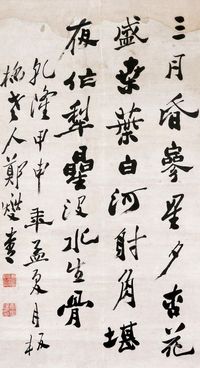 三月昏參星夕杏花
盛桑葉白河射角堪
夜作犁星沒水生骨
乾隆甲申年孟夏月板
橋老人鄭燮書